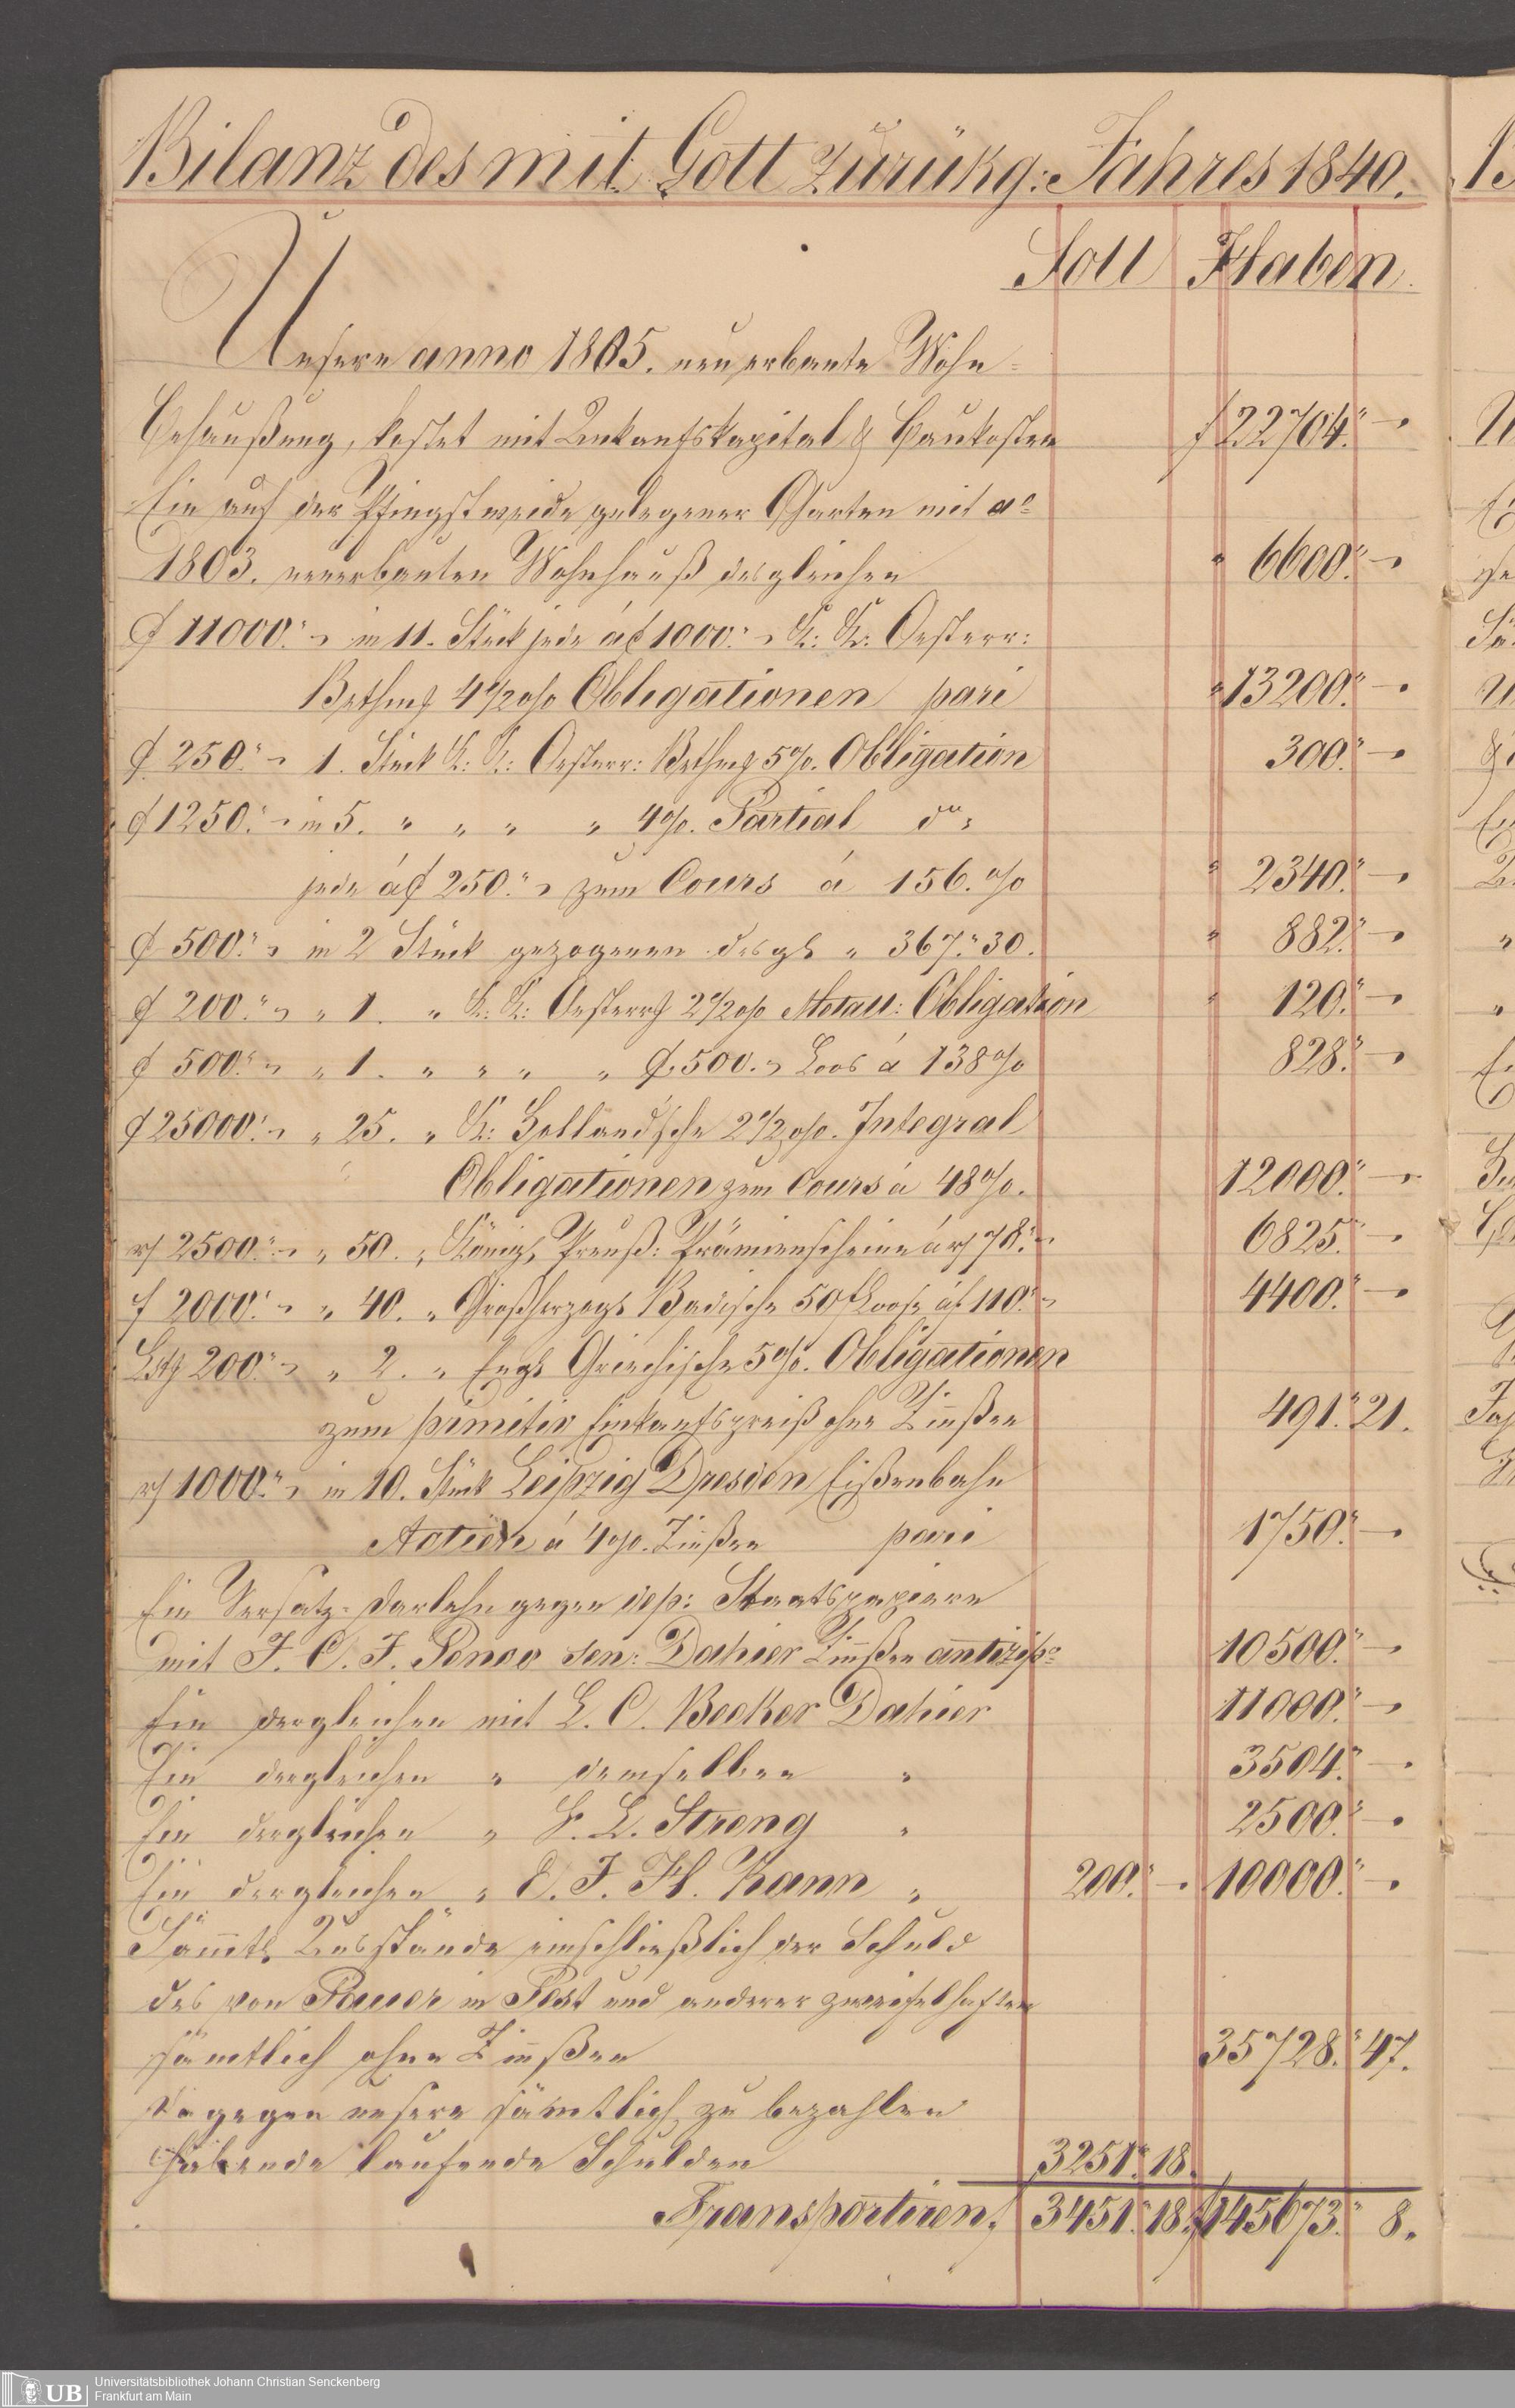 Bilanz des mit Gott zurükg: Jahres 1840.
Soll Haben.
Unsere anno 1805. neu erbaute Wohn-
Behaußung, kostet mit Ankaufskapital & Baukosten f 22704.〃 -
Ein auf der Pfingstweide gelegener Garten mit ao
1803. neuerbauten Wohnhauß desgleichen 〃 6600.〃 -
f 11000.〃 - in 11. Stück jede á f 1000.〃 - K: K: Oesterr:
Bethm 4 1/2 % Obligationen pari 〃 13200.〃 -
f 250.〃 - 1. Stück K: K: Oesterr: Bethm 5%. Obligation 300.〃 -
f 1250.〃 - in 5. 〃 〃 〃 〃 4%. Partial do
jede á f 250.〃 - zum Cours á 156.% 〃 2340.〃 -
f 500.〃 - in 2 Stück gezogenen desgl 〃 367.〃 30. 〃 882.〃 -
f 200.〃 - 〃 1. 〃 K: K: Oesterr 2 1/2 % Metall: Obligation 〃 120.〃 -
f 500.〃 - 〃 1. 〃 〃 〃 〃 f 500. - Loos á 138% 828.〃 -
f 25000.〃 - 〃 25. 〃 K: Holländ'sche 2 1/2 %. Integral
Obligationen zum Cours á 48%. 12000.〃 -
rf 2500.〃 - 〃 50. 〃 Königl Preuß: Prämienscheine á rf 78.〃 - 6825.〃 -
f 2000.〃 - 〃 40. 〃 Großherzogl Badische 50 f Loose á f 110.〃 - 4400.〃 -
200.〃 - 〃 2. 〃 Engl Griechische 5%. Obligationen
zum primitiv Einkaufspreiß ohne Zinßen 491.〃 21.
rf 1000.〃 - in 10. Stück Leipzig Dresden Eißenbahn
Actien á 4%. Zinßen pari 1750.〃 -
Ein Versatz-Darlehn gegen dep: Staatspapiere
mit J. C. J. Ponco sen: Dahier Zinßen antizipo 10500.〃 -
Ein dergleichen mit L. C. Becker Dahier 11000.〃 -
Ein dergleichen 〃 demselben 〃 3504.〃 -
Ein dergleichen 〃 L. Streng 〃 2500.〃 -
Ein dergleichen 〃 J. H. Kann 〃 200.〃 - 10000.〃 -
Sämtl Ausstände einschließlich der Schuld
des von Pauer in Pest und anderer zweifelhaften
sämtlich ohne Zinßen 35728.〃 47.
Dagegen unsere sämtlich zu bezahlen
habende laufende Schulden 3251.〃 18.
Transportiren, 3451.〃 18. f 145673.〃 8.
UB
Universitätsbibliothek Johann Christian Senckenberg
Frankfurt am Main